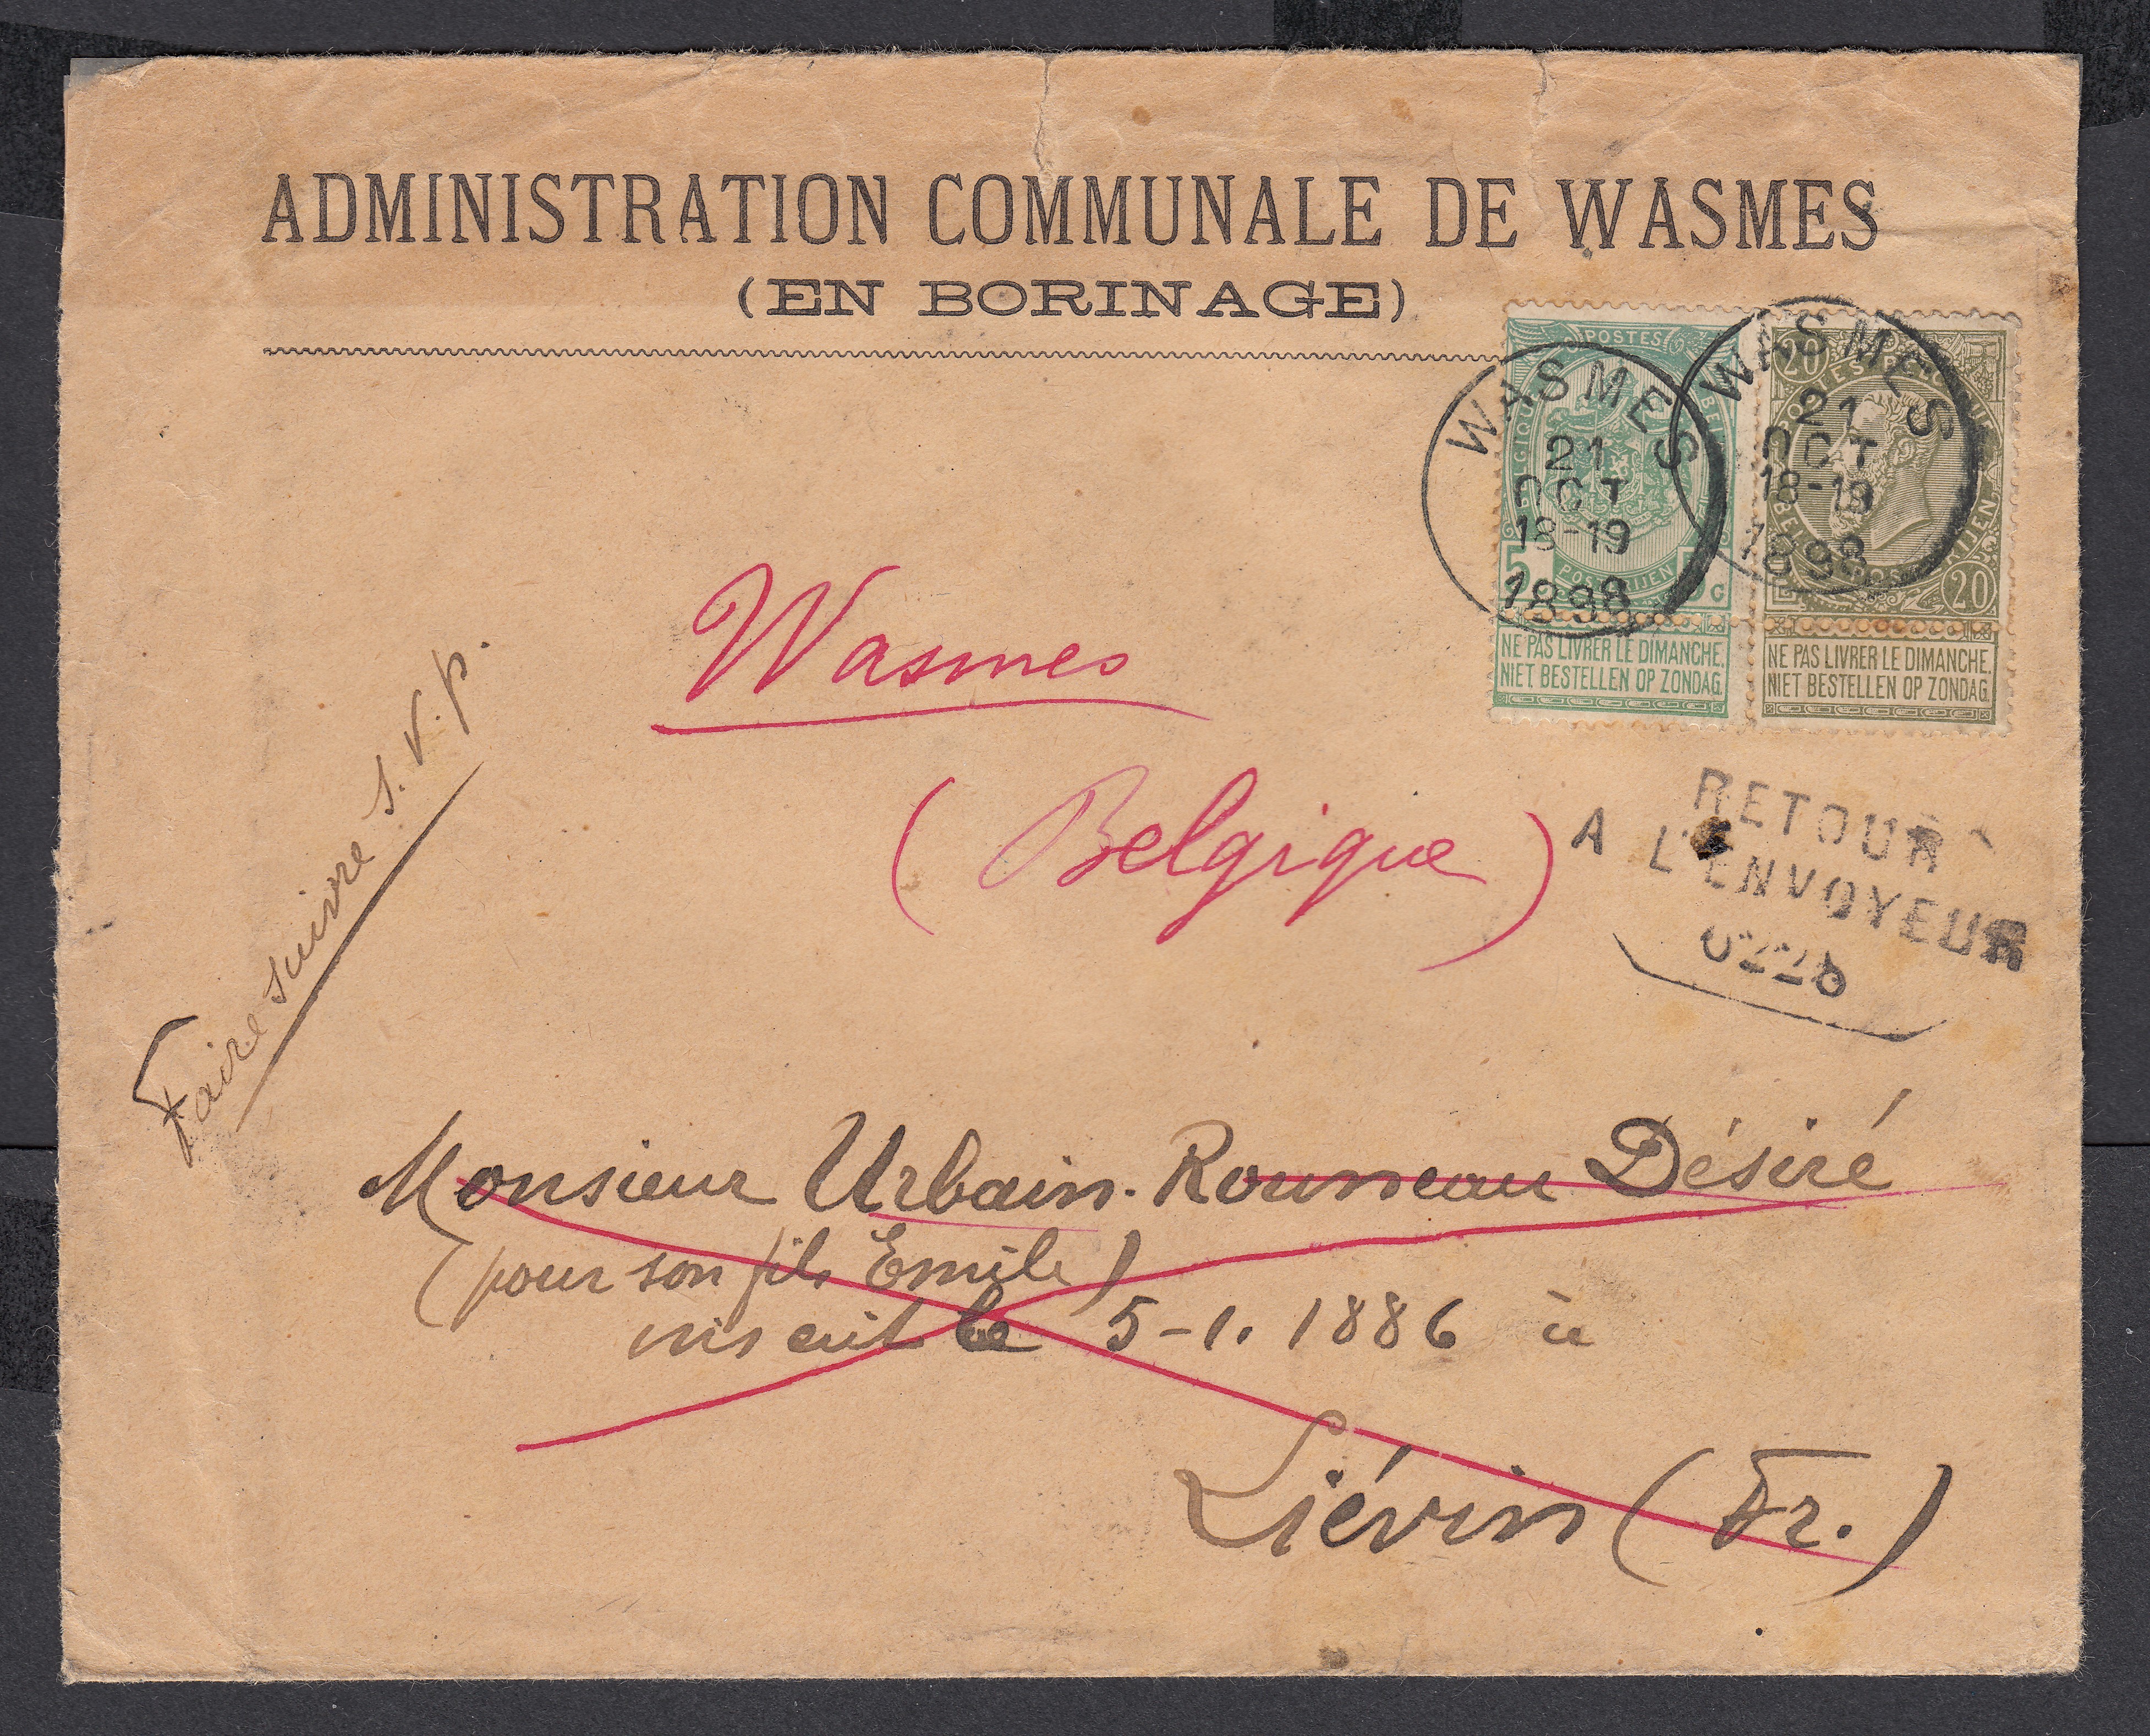 ADMINISTRATION COMMUNALE DE WASMES
(EN BORINAGE)
POSTES
5 5 c
NE PAS LIVRER LE DIMANCHE.
NIET BESTELLEN OP ZONDAG.
20
20
NE PAS LIVRER LE DIMANCHE.
NIET BESTELLEN OP ZONDAG.
WASMES
21
OCT
18-19
1898
WASMES
21
OCT
18-19
1898
Wasmes
(Belgique)
RETOUR
A L'ENVOYEUR
Faire suivre s.v.p.
Monsieur Urbain-Rousseau Désiré
(pour son fils Emile)
inscrit le 5-1. 1886 à
Liévin (Fr.)